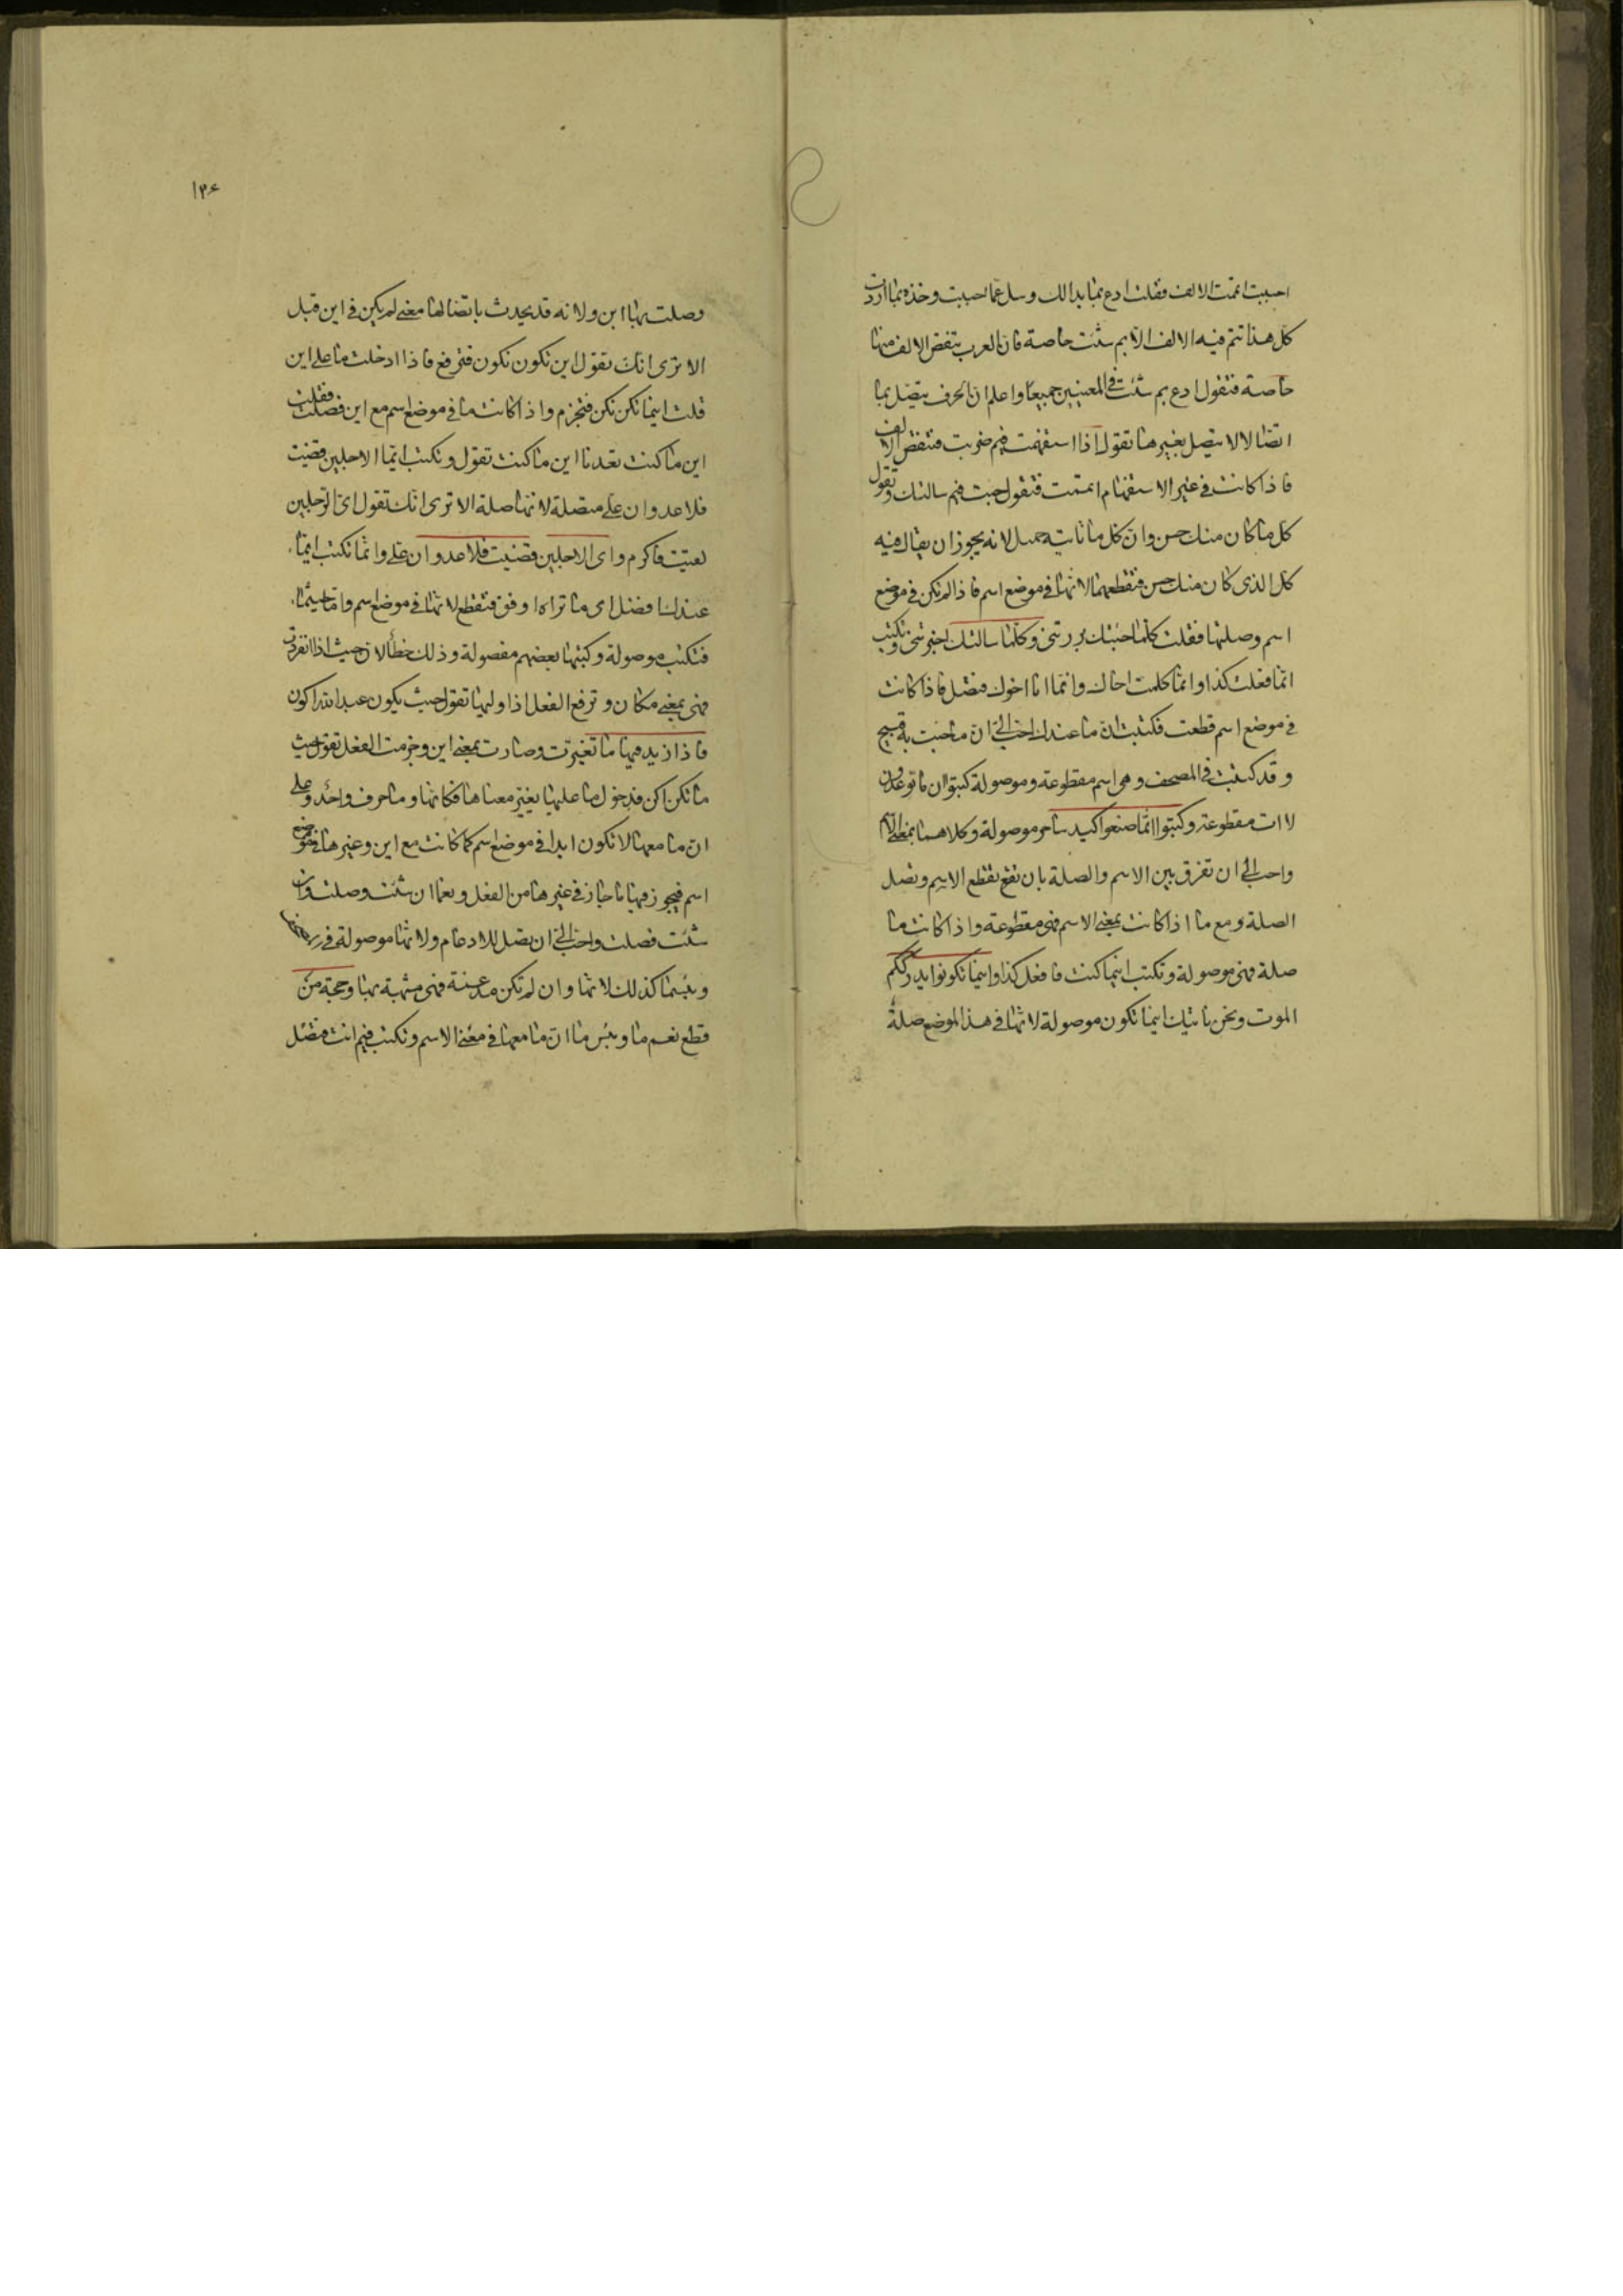 احببت اتممت الالف فقلت ادع بما بدا لك وسل عما احببت وخذه بما اردت
كل هذا تتم فيه الالف الا بم شئت خاصة فان العرب تنقص الالف منها
خاصة فتقول ادع بم شئت في المعنيين جميعا واعلم ان الحرف يتصل بما
اتصالا لا يتصل بغيرها تقول اذا استفهمت فيم ضربت فتنقص الالف
فاذا كانت في غير الاستفهام اتممت فتقول جئت فيم سالتك وتقول
كل ما كان منك حسن وان كل ما تاتيه جميل لانه يجوز ان يقال فيه
كل الذى كان منك حسن فتقطعهما لانها في موضع اسم فاذا لم تكن في موضع
اسم وصلتها فقلت كلما جئتك بررتنى وكلما سالتك اخبرتنى وتكتب
انما فعلت كذا وانما كلمت اخاك وانما انا اخوك فتصل فاذا كانت
في موضع اسم قطعت فكتبت ان ما عندك احب الي ان ما جئت به قبيح
وقد كتبت في المصحف وهى اسم مقطوعة وموصولة كتبوا ان ما توعدون
لات مقطوعة وكتبوا انما صنعوا كيد ساحر موصولة وكلاهما بمعنى الاسم
واحب الي ان تفرق بين الاسم والصلة بان تقع تقطع الاسم وتصل
الصلة ومع ما اذا كانت بمعنى الاسم فهى مقطوعة واذا كانت ما
صلة فهى موصولة وتكتب اينما كنت فافعل كذا واينما تكونوا يدرككم
الموت ونحن ناتيك اينما تكون موصولة لانها في هذا الموضع صلة
١٣٤
وصلت بها اين ولانه قد يحدث باتصالها معنى لم يكن في اين قبل
الا ترى انك تقول اين تكون نكون فترفع فاذا ادخلت ما على اين
قلت اينما تكن نكن فتجزم واذا كانت ما في موضع اسم مع اين فصلت فقلت
اين ما كنت تعدنا اين ما كنت تقول وتكتب ايما الاجلين قضيت
فلا عدوان علي متصلة لانها صلة الا ترى انك تقول اى الرجلين
لقيت فاكرم واى الاجلين قضيت فلا عدوان علي وانما تكتب ايما
عندك افضل اى ما تراه اوفق فتقطع لانها في موضع اسم واما حيثما
فتكتب موصولة وكتبها بعضهم مفصولة وذلك خطأ لان حيث اذا انفردت
فهى بمعنى مكان وترفع الفعل اذا وليها تقول حيث يكون عبد الله اكون
فاذا زيد فيها ما تغيرت وصارت بمعنى اين وجزمت الفعل تقول حيث
ما تكن اكن فدخول ما عليها يغير معناها فكانها وما حرف واحد وعلى
ان ما معها لا تكون ابدا في موضع اسم كما كانت مع اين وغيرها في موضع
اسم فيجوز فيها ما جاز في غيرها من الفعل ونعما ان شئت وصلت وان
شئت فصلت واحب الي ان يصل للادغام ولانها موصولة في
وبئسما كذلك لانها وان لم تكن مدغمة فهى مشبهة بها وحجة من
قطع نعم ما وبئس ما ان ما معها في معنى الاسم وتكتب فيم انت فتصل